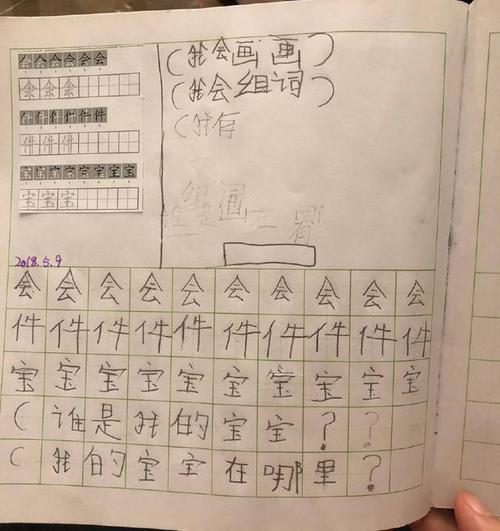 会会会会会会
会会会
件件件件件件
件件件
宝宝宝宝宝宝宝宝
宝宝宝
(我会画画)
(我会组词)
(我存
2018.5.9
会会会会会会会会会会
件件件件件件件件件件
宝宝宝宝宝宝宝宝宝宝
(谁是我的宝宝??
(我的宝宝在哪里?